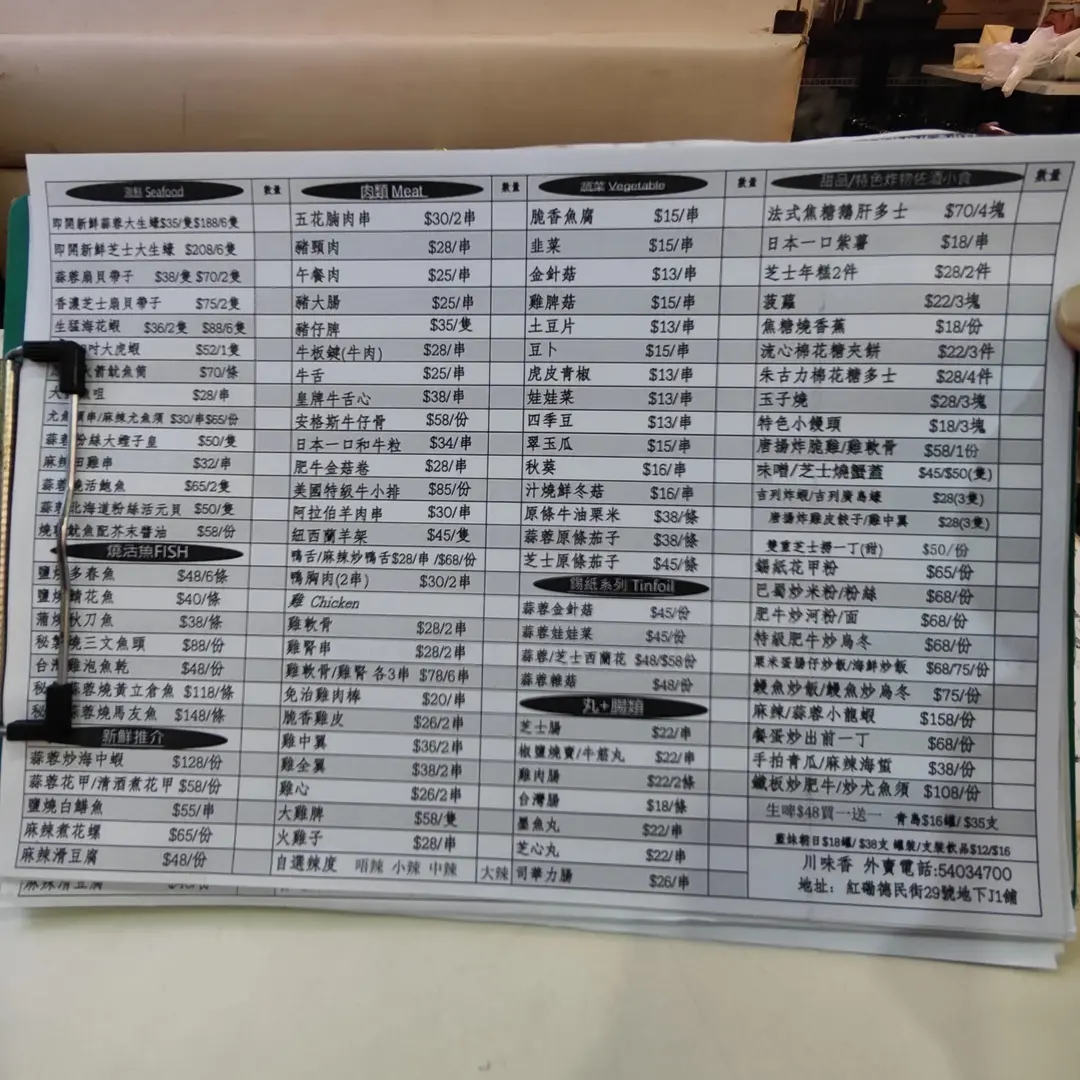 海鮮 Seafood 數量
即開新鮮蒜蓉大生蠔$35/隻$188/6隻
即開新鮮芝士大生蠔 $208/6隻
蒜蓉扇貝帶子 $38/隻 $70/2隻
香濃芝士扇貝帶子 $75/2隻
生猛海花蝦 $36/2隻 $88/6隻
吋大虎蝦 $52/1隻
火箭魷魚筒 $70/條
大 咀 $28/串
尤魚 串/麻辣尤魚須 $30/串$65/份
蒜蓉粉絲大蟶子皇 $50/隻
麻辣田雞串 $32/串
蒜蓉燒活鮑魚 $65/2隻
蒜蓉北海道粉絲活元貝 $50/隻
燒 魷魚配芥末醬油 $58/份
燒活魚FISH
鹽燒多春魚 $48/6條
鹽燒鯖花魚 $40/條
蒲燒秋刀魚 $38/條
秘製燒三文魚頭 $88/份
台灣雞泡魚乾 $48/份
秘製蒜蓉燒黃立倉魚 $118/條
秘製蒜蓉燒馬友魚 $148/條
新鮮推介
蒜蓉炒海中蝦 $128/份
蒜蓉花甲/清酒煮花甲 $58/份
鹽燒白鱔魚 $55/串
麻辣煮花螺 $65/份
麻辣滑豆腐 $48/份
肉類 Meat 數量
五花腩肉串 $30/2串
豬頸肉 $28/串
午餐肉 $25/串
豬大腸 $25/串
豬仔脾 $35/隻
牛板鍵(牛肉) $28/串
牛舌 $25/串
皇牌牛舌心 $38/串
安格斯牛仔骨 $58/份
日本一口和牛粒 $34/串
肥牛金菇卷 $28/串
美國特級牛小排 $85/份
阿拉伯羊肉串 $30/串
紐西蘭羊架 $45/隻
鴨舌/麻辣炒鴨舌$28/串 /$68/份
鴨胸肉(2串) $30/2串
雞 Chicken
雞軟骨 $28/2串
雞腎串 $28/2串
雞軟骨/雞腎 各3串 $78/6串
免治雞肉棒 $20/串
脆香雞皮 $26/2串
雞中翼 $36/2串
雞全翼 $38/2串
雞心 $26/2串
大雞脾 $58/隻
火雞子 $28/串
自選辣度 唔辣 小辣 中辣 大辣
蔬菜 Vegetable 數量
脆香魚腐 $15/串
韭菜 $15/串
金針菇 $13/串
雞脾菇 $15/串
土豆片 $13/串
豆卜 $15/串
虎皮青椒 $13/串
娃娃菜 $13/串
四季豆 $13/串
翠玉瓜 $15/串
秋葵 $16/串
汁燒鮮冬菇 $16/串
原條牛油粟米 $38/條
蒜蓉原條茄子 $38/條
芝士原條茄子 $45/條
錫紙系列 Tinfoil
蒜蓉金針菇 $45/份
蒜蓉娃娃菜 $45/份
蒜蓉/芝士西蘭花 $48/$58份
蒜蓉雜菇 $48/份
丸+腸類
芝士腸 $22/串
椒鹽燒賣/牛筋丸 $22/串
雞肉腸 $22/2條
台灣腸 $18/條
墨魚丸 $22/串
芝心丸 $22/串
司華力腸 $26/串
甜品/特色炸物佐酒小食 數量
法式焦糖鵝肝多士 $70/4塊
日本一口紫薯 $18/串
芝士年糕2件 $28/2件
菠蘿 $22/3塊
焦糖燒香蕉 $18/份
流心棉花糖夾餅 $22/3件
朱古力棉花糖多士 $28/4件
玉子燒 $28/3塊
特色小饅頭 $18/3塊
唐揚炸脆雞/雞軟骨 $58/1份
味噌/芝士燒蟹蓋 $45/$50(隻)
吉列炸蝦/吉列廣島蠔 $28(3隻)
唐揚炸雞皮餃子/雞中翼 $28(3隻)
雙重芝士撈一丁(甜) $50/份
錫紙花甲粉 $65/份
巴蜀炒米粉/粉絲 $68/份
肥牛炒河粉/面 $68/份
特級肥牛炒烏冬 $68/份
粟米蛋腸仔炒飯/海鮮炒飯 $68/75/份
鰻魚炒飯/鰻魚炒烏冬 $75/份
麻辣/蒜蓉小龍蝦 $158/份
餐蛋炒出前一丁 $68/份
手拍青瓜/麻辣海蜇 $38/份
鐵板炒肥牛/炒尤魚須 $108/份
生啤$48買一送一 青島$16罐/ $35支
藍妹朝日$18罐/ $38支 罐裝/支裝飲品$12/$16
川味香 外賣電話:54034700
地址: 紅磡德民街29號地下J1舖